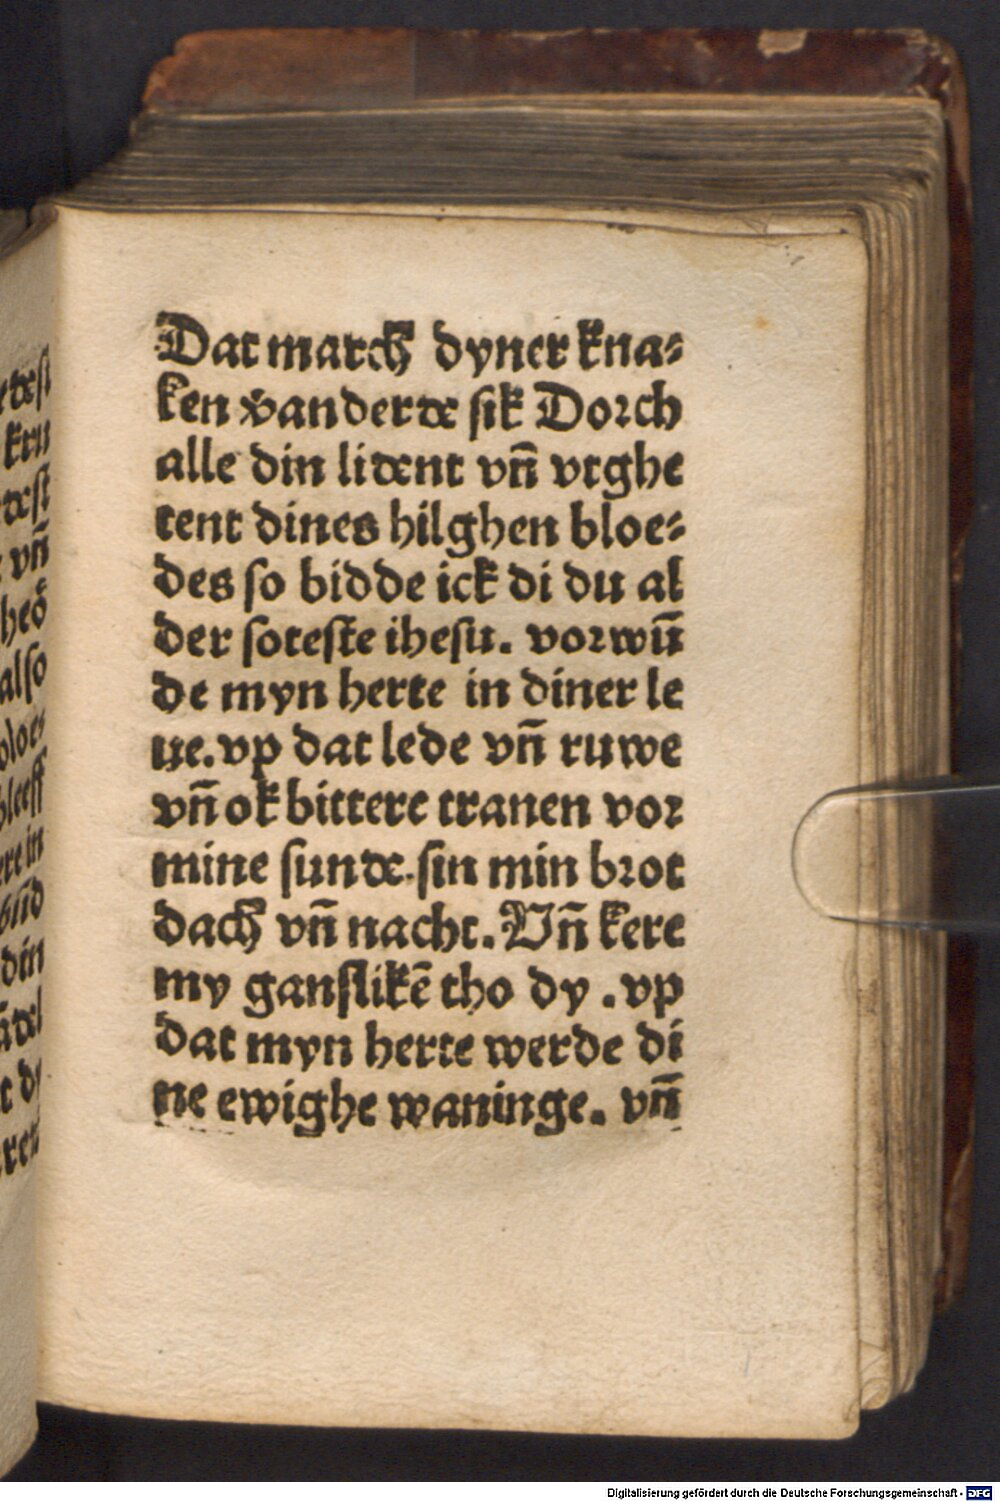 Dat march dyner kna⸗
ken vanderde sik Dorch
alle din lident vn̄ vtghe
tent dines hilghen bloe⸗
des so bidde ick di du al
der soteste ihesu. vorwū
de myn herte in diner le
ue. vp dat lede vn̄ ruwe
vn̄ ok bittere tranen vor
mine sunde. sin min brot
dach vn̄ nacht. Vn̄ kere
my ganslikē tho dy . vp
dat myn herte werde di
ne ewighe waninge. vn̄
Digitalisierung gefördert durch die Deutsche Forschungsgemeinschaft - DFG